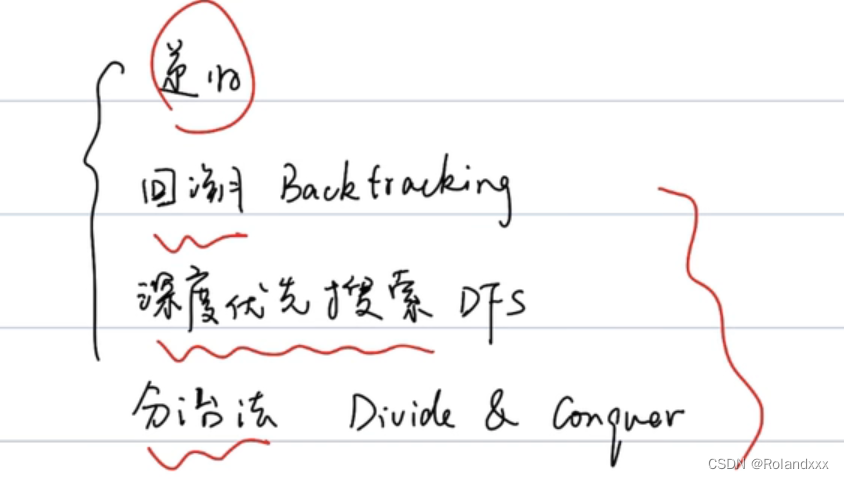 递归
回溯 Backtracking
深度优先搜索 DFS
分治法 Divide & Conquer
CSDN @Rolandxxx